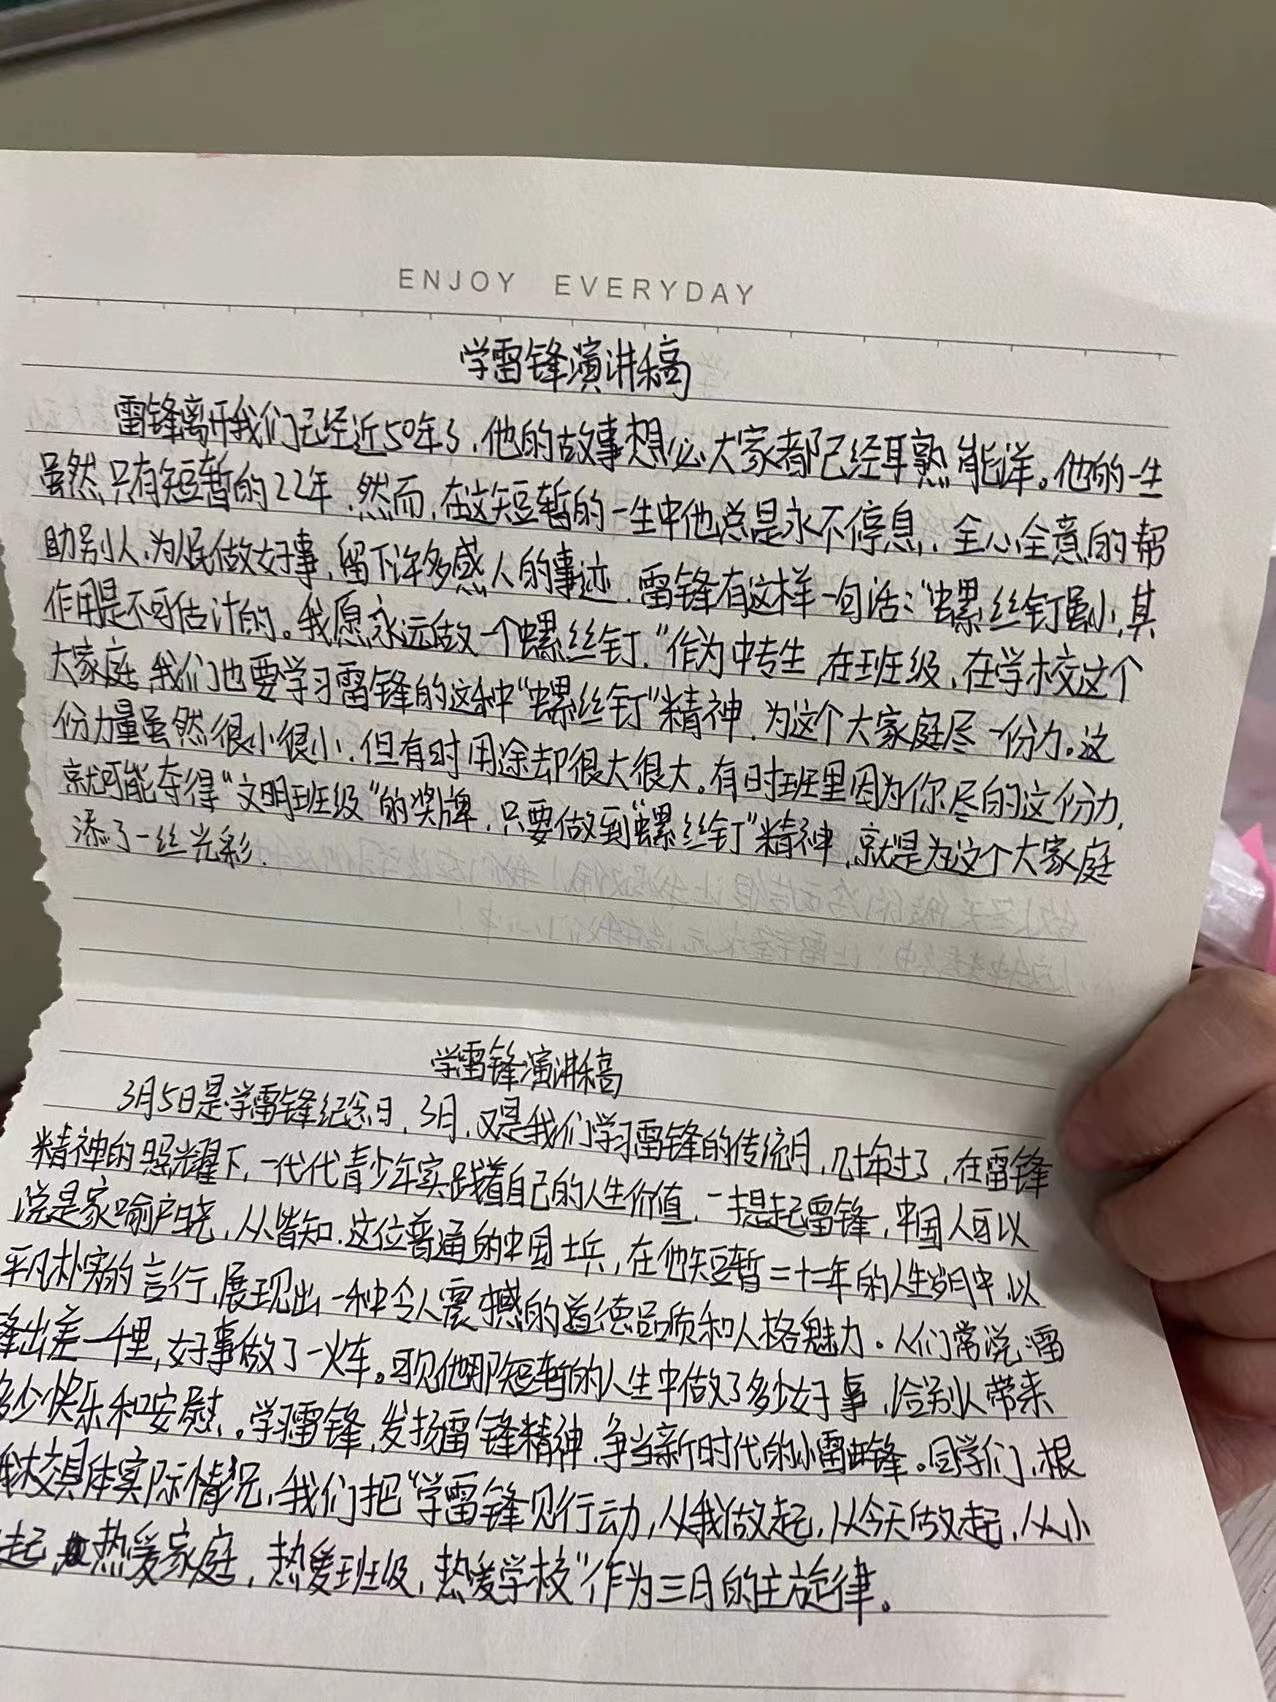 ENJOY EVERYDAY
学雷锋演讲稿
雷锋离开我们已经近50年了,他的故事想必大家都已经耳熟能洋。他的一生
虽然只有短暂的22年,然而,在这短暂的一生中他总是永不停息,全心全意的帮
助别人,为人民做好事,留下许多感人的事迹,雷锋有这样一句话:"螺丝钉虽小,其
作用是不可估计的。我愿永远做一个螺丝钉."作为中专生,在班级,在学校这个
大家庭,我们也要学习雷锋的这种"螺丝钉"精神,为这个大家庭尽一份力。这
份力量虽然很小很小,但有时用途却很大很大。有时班里因为你尽的这份力,
就可能夺得"文明班级"的奖牌,只要做到"螺丝钉"精神,就是为这个大家庭
添了一丝光彩.
学雷锋演讲稿
3月5日是学雷锋纪念日,3月,又是我们学习雷锋的传统月,几十年过了,在雷锋
精神的照耀下,一代代青少年实践着自己的人生价值,一提起雷锋,中国人可以
说是家喻户晓,从皆知,这位普通的中国士兵,在他短暂二十二年的人生岁月中,以
平凡朴实的言行,展现出一种令人震撼的道德品质和人格魅力。人们常说"雷
锋出差一千里,好事做了一火车。可见他那短暂的人生中做了多少好事,给别人带来
多少快乐和安慰。学习雷锋,发扬雷锋精神,争当新时代的小雷锋。同学们,根
校具体实际情况,我们把"学雷锋见行动,从我做起,从今天做起,从小
起,热爱家庭,热爱班级,热爱学校"作为三月的主旋律。